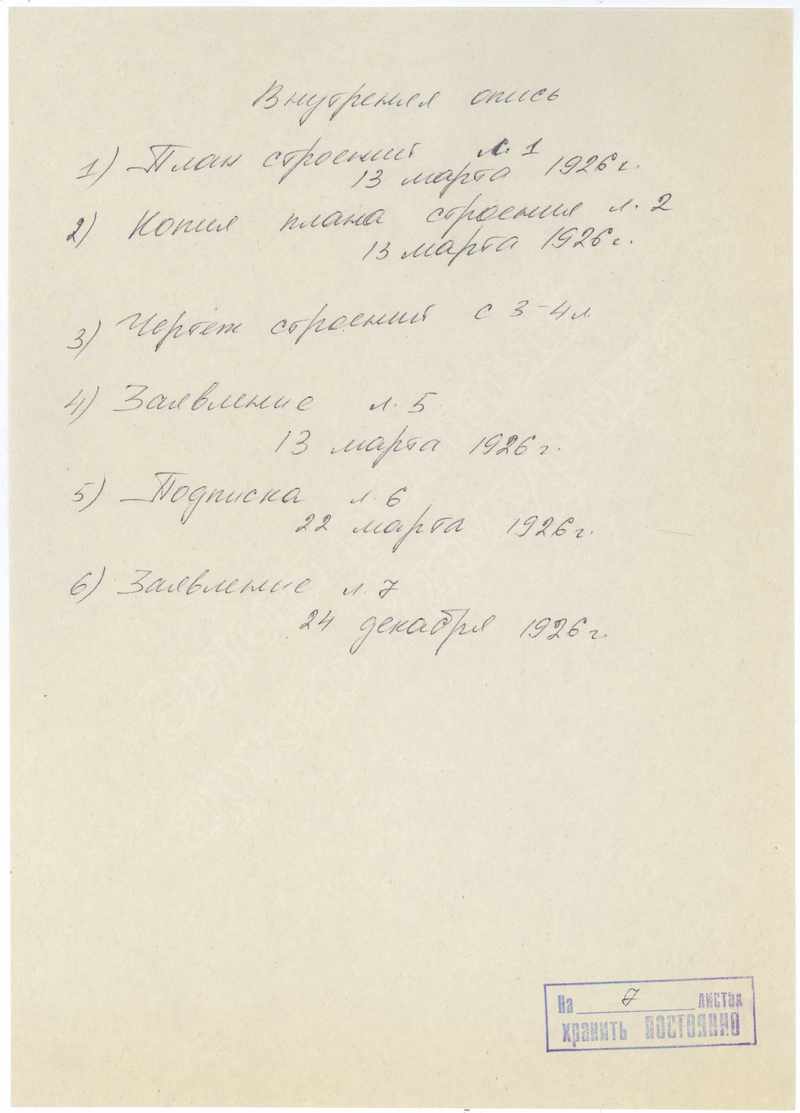 Внутреняя опись
1) План строений л. 1
13 марта 1926 г.
2) Копия плана строения л. 2
13 марта 1926 г.
3) Чертеж строений с 3-4 л.
4) Заявление л. 5
13 марта 1926 г.
5) Подписка л. 6
22 марта 1926 г.
6) Заявление л. 7
24 декабря 1926 г.
На 7 листах
хранить постоянно